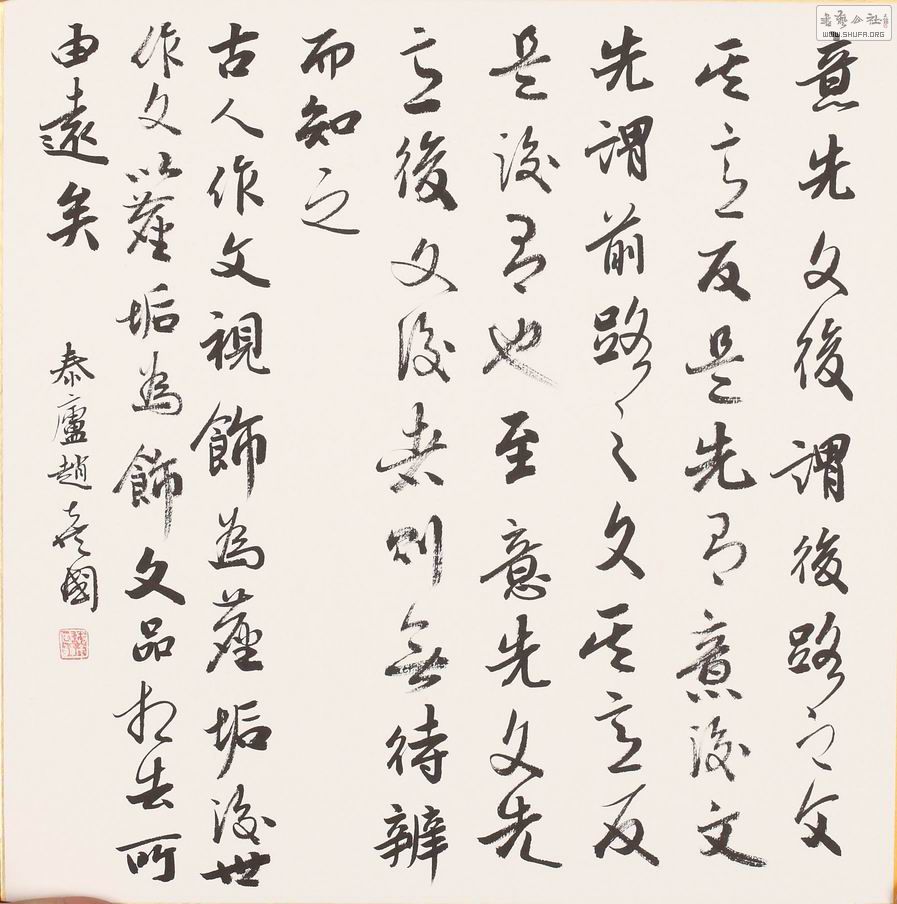 意先文後謂後路之文
其意反是先有意後文
先謂前路之文其意反
是後有也至意先文先
意後文後者則無待辨
而知之
古人作文視飾為塵垢後世
作文以塵垢為飾文品相去所
由遠矣
泰廬趙國
書藝公社
WWW.SHUFA.ORG